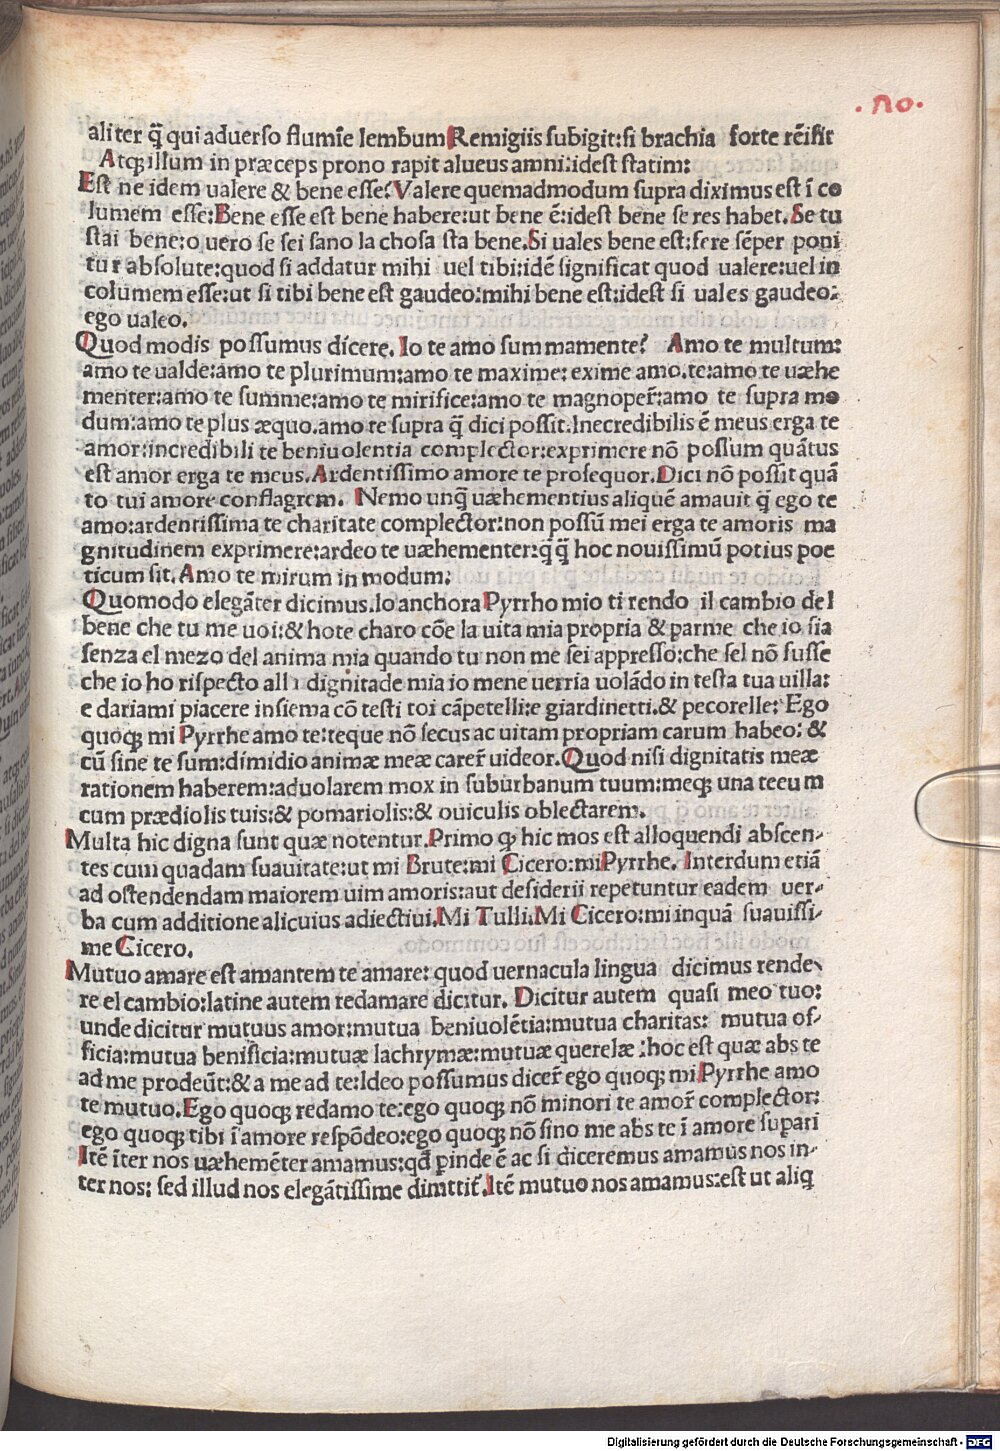 .no.
aliter q̃ qui aduerso flumĩe lembum Remigiis subigit: si brachia forte rẽisit
Atq; illum in præceps prono rapit alueus amni: idest statim:
Est ne idem ualere & bene esse? Valere quemadmodum supra diximus est ĩ co
lumem esse: Bene esse est bene habere: ut bene ẽ: idest bene se res habet. Se tu
stai bene: o uero se sei sano la chosa sta bene. Si uales bene est: fere sẽper poni
tur absolute: quod si addatur mihi uel tibi: idẽ significat quod ualere: uel in
columem esse: ut si tibi bene est gaudeo: mihi bene est: idest si uales gaudeo:
ego ualeo.
Quod modis possumus dicere. Io te amo summamente? Amo te multum:
amo te ualde: amo te plurimum: amo te maxime: exime amo. te: amo te uæhe
menter: amo te summe: amo te mirifice: amo te magnoper̃: amo te supra mo
dum: amo te plus æquo. amo te supra q̃ dici possit. Inecredibilis ẽ meus erga te
amor: incredibili te beniuolentia complector: exprimere nõ possum quãtus
est amor erga te meus. Ardentissimo amore te prosequor. Dici nõ possit quã
to tui amore conflagrem. Nemo unq̃ uæhementius aliquẽ amauit q̃ ego te
amo: ardentissima te charitate complector: non possũ mei erga te amoris ma
gnitudinem exprimere: ardeo te uæhementer: q̃q̃ hoc nouissimũ potius poe
ticum sit. Amo te mirum in modum:
Quomodo elegãter dicimus. Io anchora Pyrrho mio ti rendo il cambio del
bene che tu me uoi: & hote charo cõe la uita mia propria & parme che io sia
senza el mezo del anima mia quando tu non me sei appresso: che sel nõ fusse
che io ho rispecto alla dignitade mia io mene uerria uolãdo in testa tua uilla:
e dariami piacere insiema cõ testi toi cãpetelli: e giardinetti. & pecorelle: Ego
quoq; mi Pyrrhe amo te: teque nõ secus ac uitam propriam carum habeo: &
cũ sine te sum: dimidio animæ meæ carer̃ uideor. Quod nisi dignitatis meæ
rationem haberem: aduolarem mox in suburbanum tuum: meq; una tecum
cum prædiolis tuis: & pomariolis: & ouiculis oblectarem.
Multa hic digna sunt quæ notentur. Primo ꝙ hic mos est alloquendi abscen-
tes cum quadam suauitate: ut mi Brute: mi Cicero: mi Pyrrhe. Interdum etiã
ad ostendendam maiorem uim amoris: aut desiderii repetuntur eadem uer-
ba cum additione alicuius adiectiui. Mi Tulli. Mi Cicero: mi inquã suauissi-
me Cicero.
Mutuo amare est amantem te amare: quod uernacula lingua dicimus rende
re el cambio: latine autem redamare dicitur. Dicitur autem quasi meo tuo:
unde dicitur mutuus amor: mutua beniuolẽtia: mutua charitas: mutua of-
ficia: mutua benificia: mutuæ lachrymæ: mutuæ querelæ: hoc est quæ abs te
ad me prodeũt: & a me ad te: Ideo possumus dicer̃ ego quoq; mi Pyrrhe amo
te mutuo. Ego quoq; redamo te: ego quoq; nõ minori te amor̃ complector:
ego quoq; tibi ĩ amore respõdeo: ego quoq; nõ sino me abs te ĩ amore supari
Itẽ ĩter nos uæhemẽter amamus: qd̃ ꝑinde ẽ ac si diceremus amamus nos in-
ter nos: sed illud nos elegãtissime dimttit̃. Itẽ mutuo nos amamus: est ut aliq̃
Digitalisierung gefördert durch die Deutsche Forschungsgemeinschaft - DFG